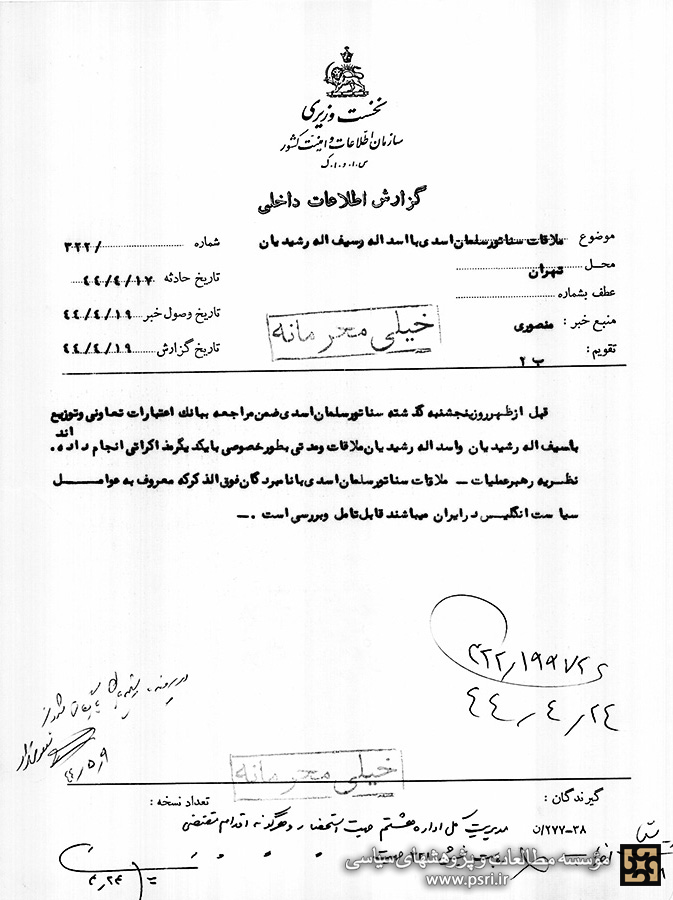 نخست وزیری
سازمان اطلاعات و امنیت کشور
س.ا.و.ا.ک
گزارش اطلاعات داخلی
موضوع ملاقات سناتور سلمان اسدی با اسد اله وسیف اله رشیدیان
شماره /۳۲۲
محل تهران
تاریخ حادثه ۴۴/۴/۱۷
عطف بشماره
تاریخ وصول خبر ۴۴/۴/۱۹
منبع خبر : منصوری
تاریخ گزارش ۴۴/۴/۱۹
تقویم : ب ۲
خیلی محرمانه
قبل از ظهر روز پنجشنبه گذشته سناتور سلمان اسدی ضمن مراجعه ببانک اعتبارات تعاونی وتوزیع
باسیف اله رشیدیان واسد اله رشیدیان ملاقات ومدتی بطور خصوصی با یکدیگر مذاکراتی انجام داده اند.
نظریه رهبر عملیات - ملاقات سناتور سلمان اسدی با نامبردگان فوق الذکر که معروف به عوامل
سیاست انگلیس در ایران میباشند قابل تامل وبررسی است .-
۳۲۲/۱۹۹۷۲۶
۴۴/۴/۲۴
۴۴/۵/۹
خیلی محرمانه
گیرندگان :
تعداد نسخه :
مدیریت کل اداره هشتم جهت استحضار و هرگونه اقدام مقتضی
۲۷۷-۳۸/ن
۴/۲۴
مؤسسه مطالعات و پژوهشهای سیاسی
www.psri.ir